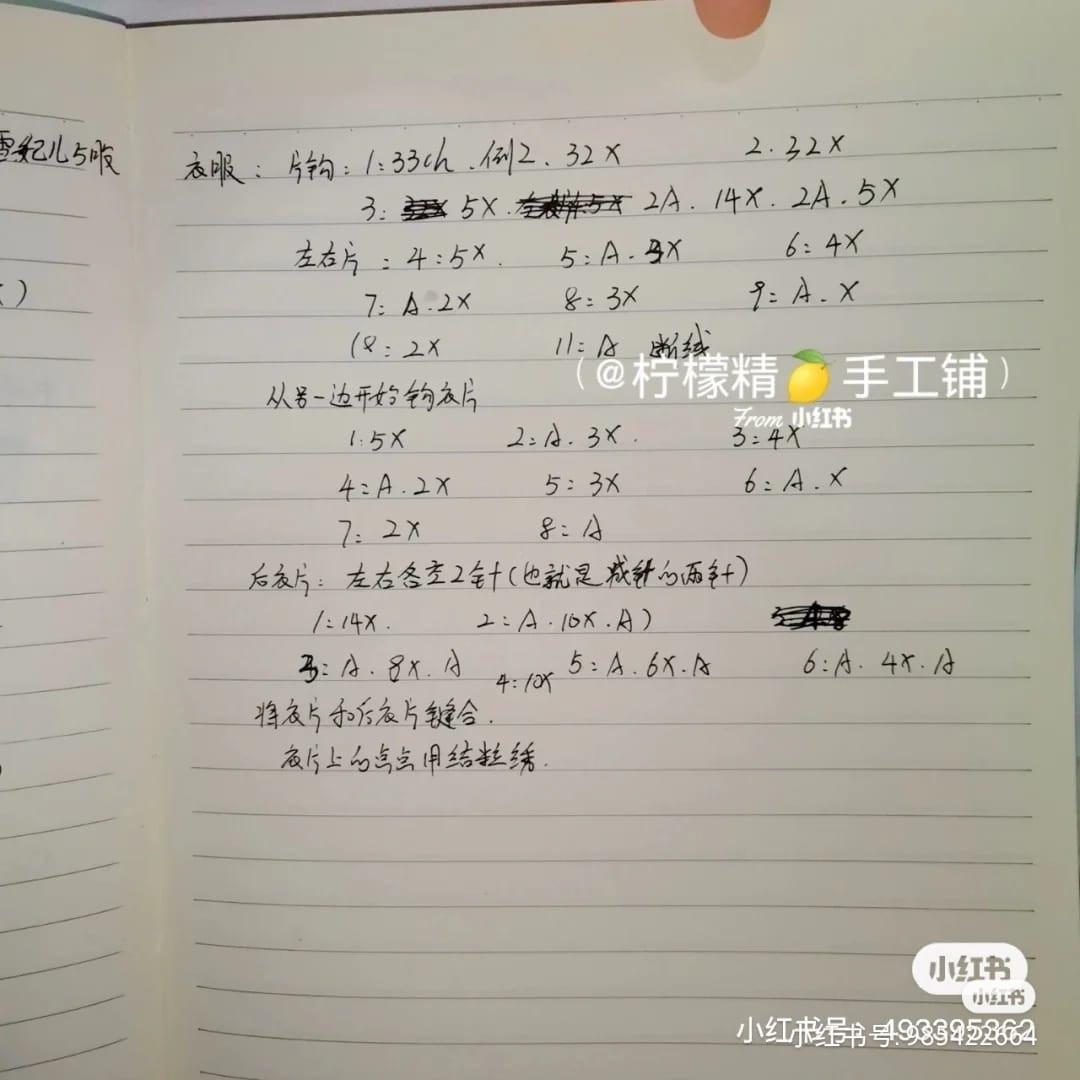 雪妃儿与服
衣服：片钩：1:33ch.倒2.32X 2.32X
3: 5X. 2A.14X.2A.5X
左右片：4:5X. 5:A.3X 6:4X
7:A.2X 8:3X 9:A.X
10:2X 11:A 断线
(@柠檬精🍋手工铺)
From 小红书
从另一边开始钩衣片
1:5X 2:A.3X. 3:4X
4:A.2X 5:3X 6:A.X
7:2X 8:A
后衣片：左右各空2针(也就是减针的两针)
1:14X. 2:A.10X.A)
3:A.8X.A 4:10X 5:A.6X.A 6:A.4X.A
将衣片和后衣片缝合.
衣片上的点点用结粒绣.
小红书
小红书
小红书号: 493395362
小红书号: 985422664